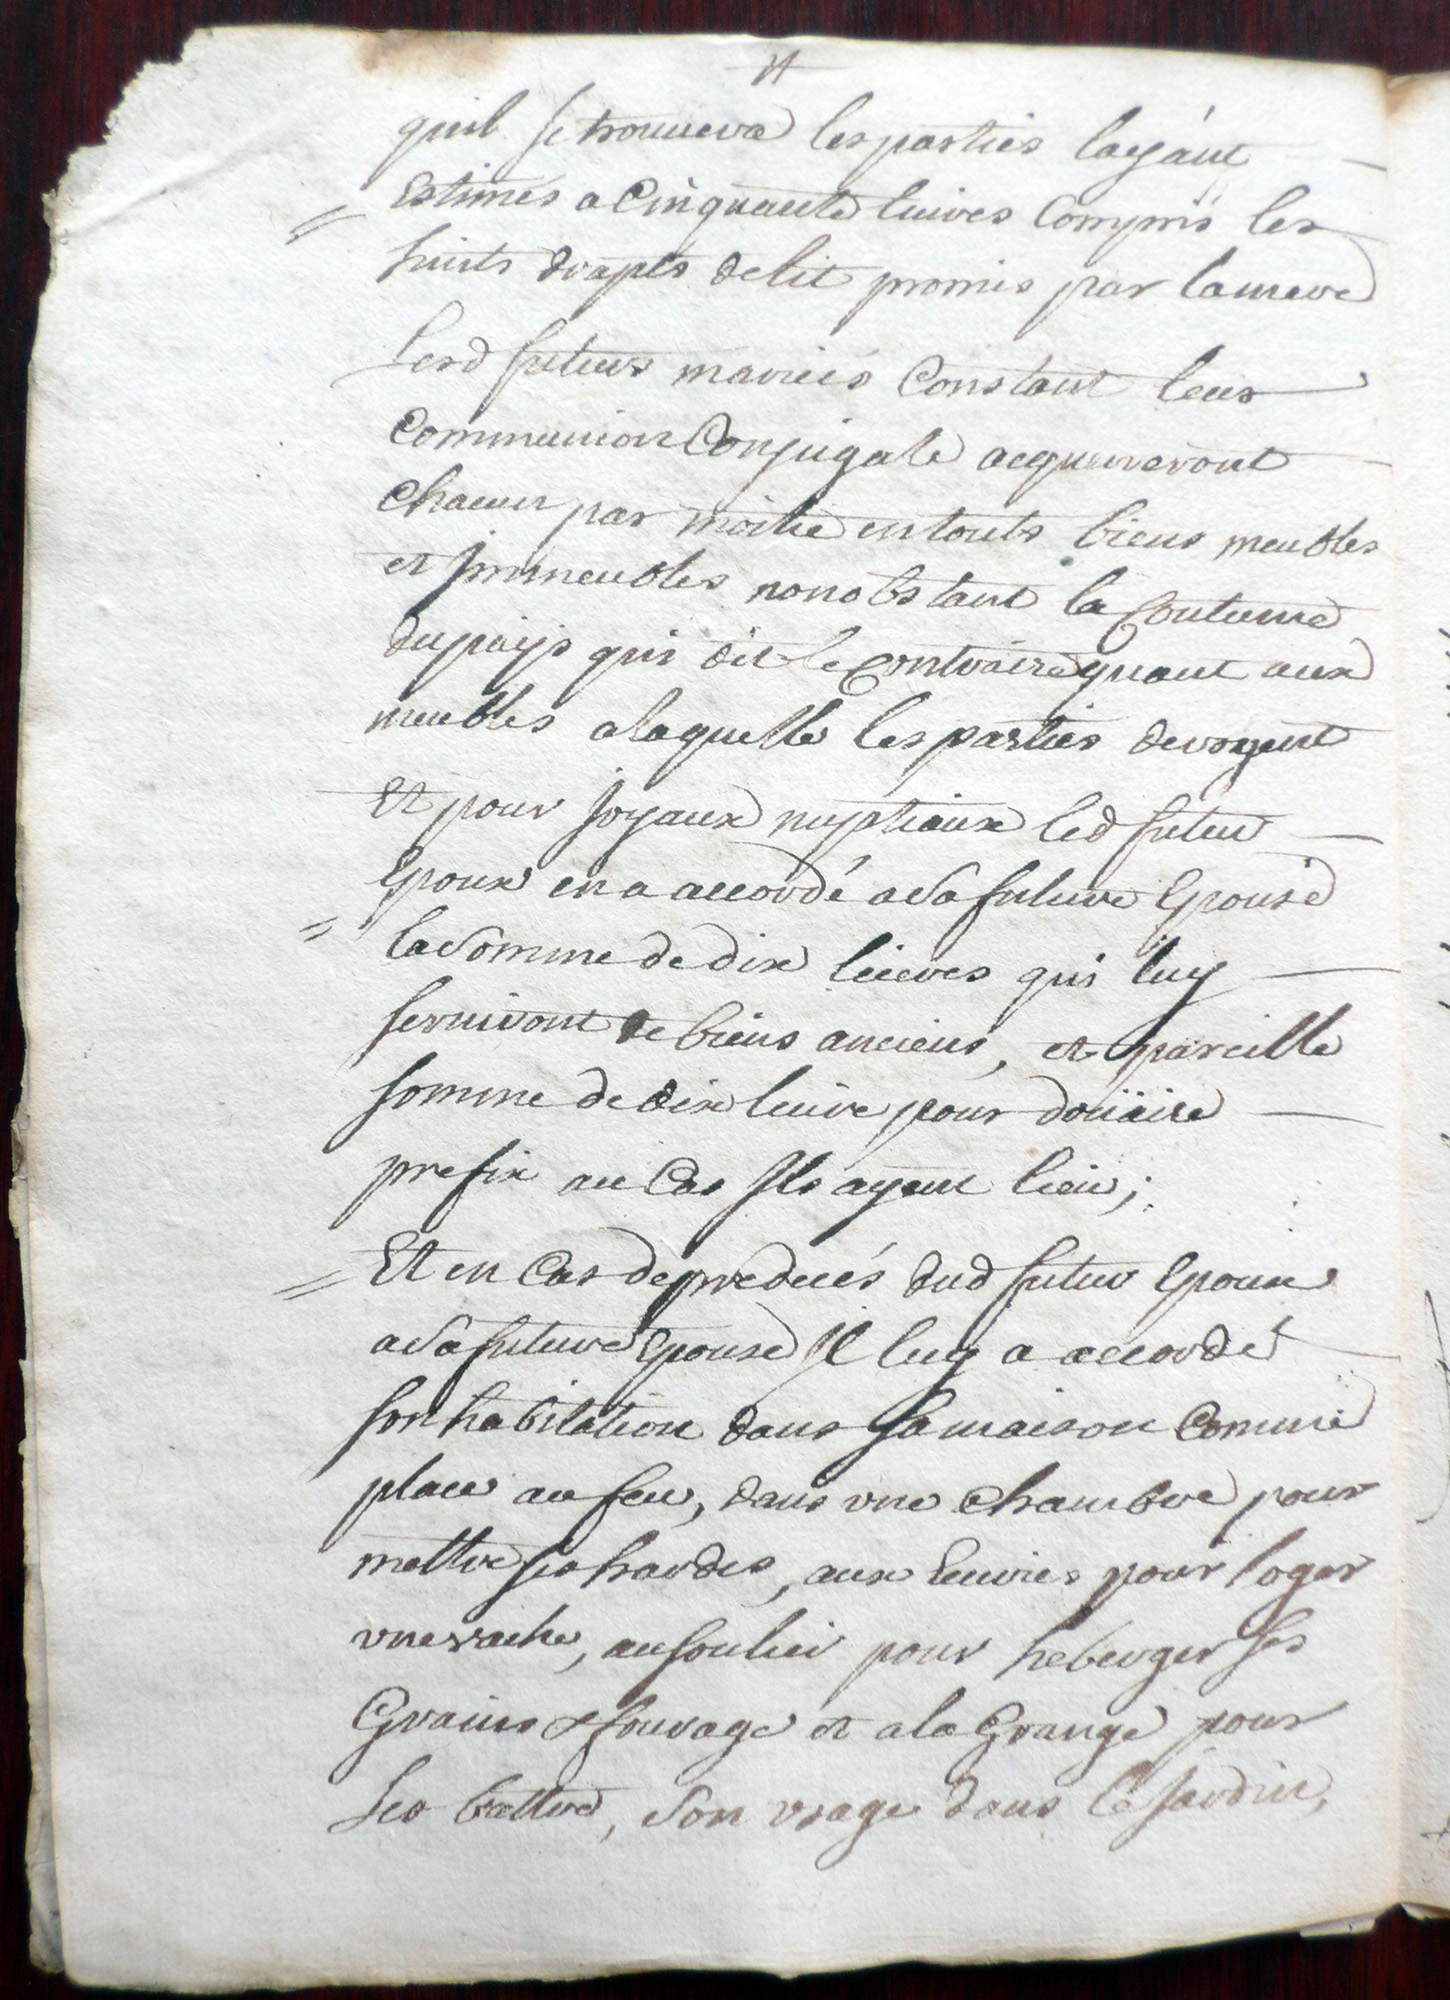 quil se trouuera les parties layant
Estimés a Cinquante liures Compris les
huits draps de lit promis par la mere
Lesd futurs mariés Constant leur
Communion Conjugale acquereront
Chacun par moitie en touts biens meubles
et Jmmeubles nonobstant la Coutume
du pays qui dit le Contraire quant aux
meubles a laquelle les parties devoyent
Et pour Joyaux nuptiaux led futur
Epoux en a accordé a sa future Epouse
la somme de dix lieures qui luy
seruiront de biens anciens, et pareille
somme de dix liure pour doüaire
prefix au Cas Ils ayent lieu;
Et en Cas de predecés dud futur Epoux
a sa future Epouse Jl luy a accordé
son habitation dans sa maison Comme
place au feu, dans vne chambre pour
mettre ses hardes, aux Ecuries pour loger
vne vache, au soulier pour heberger ses
Grains & fourage et a la Grange pour
Les battre, son vsage dans le Jardin,